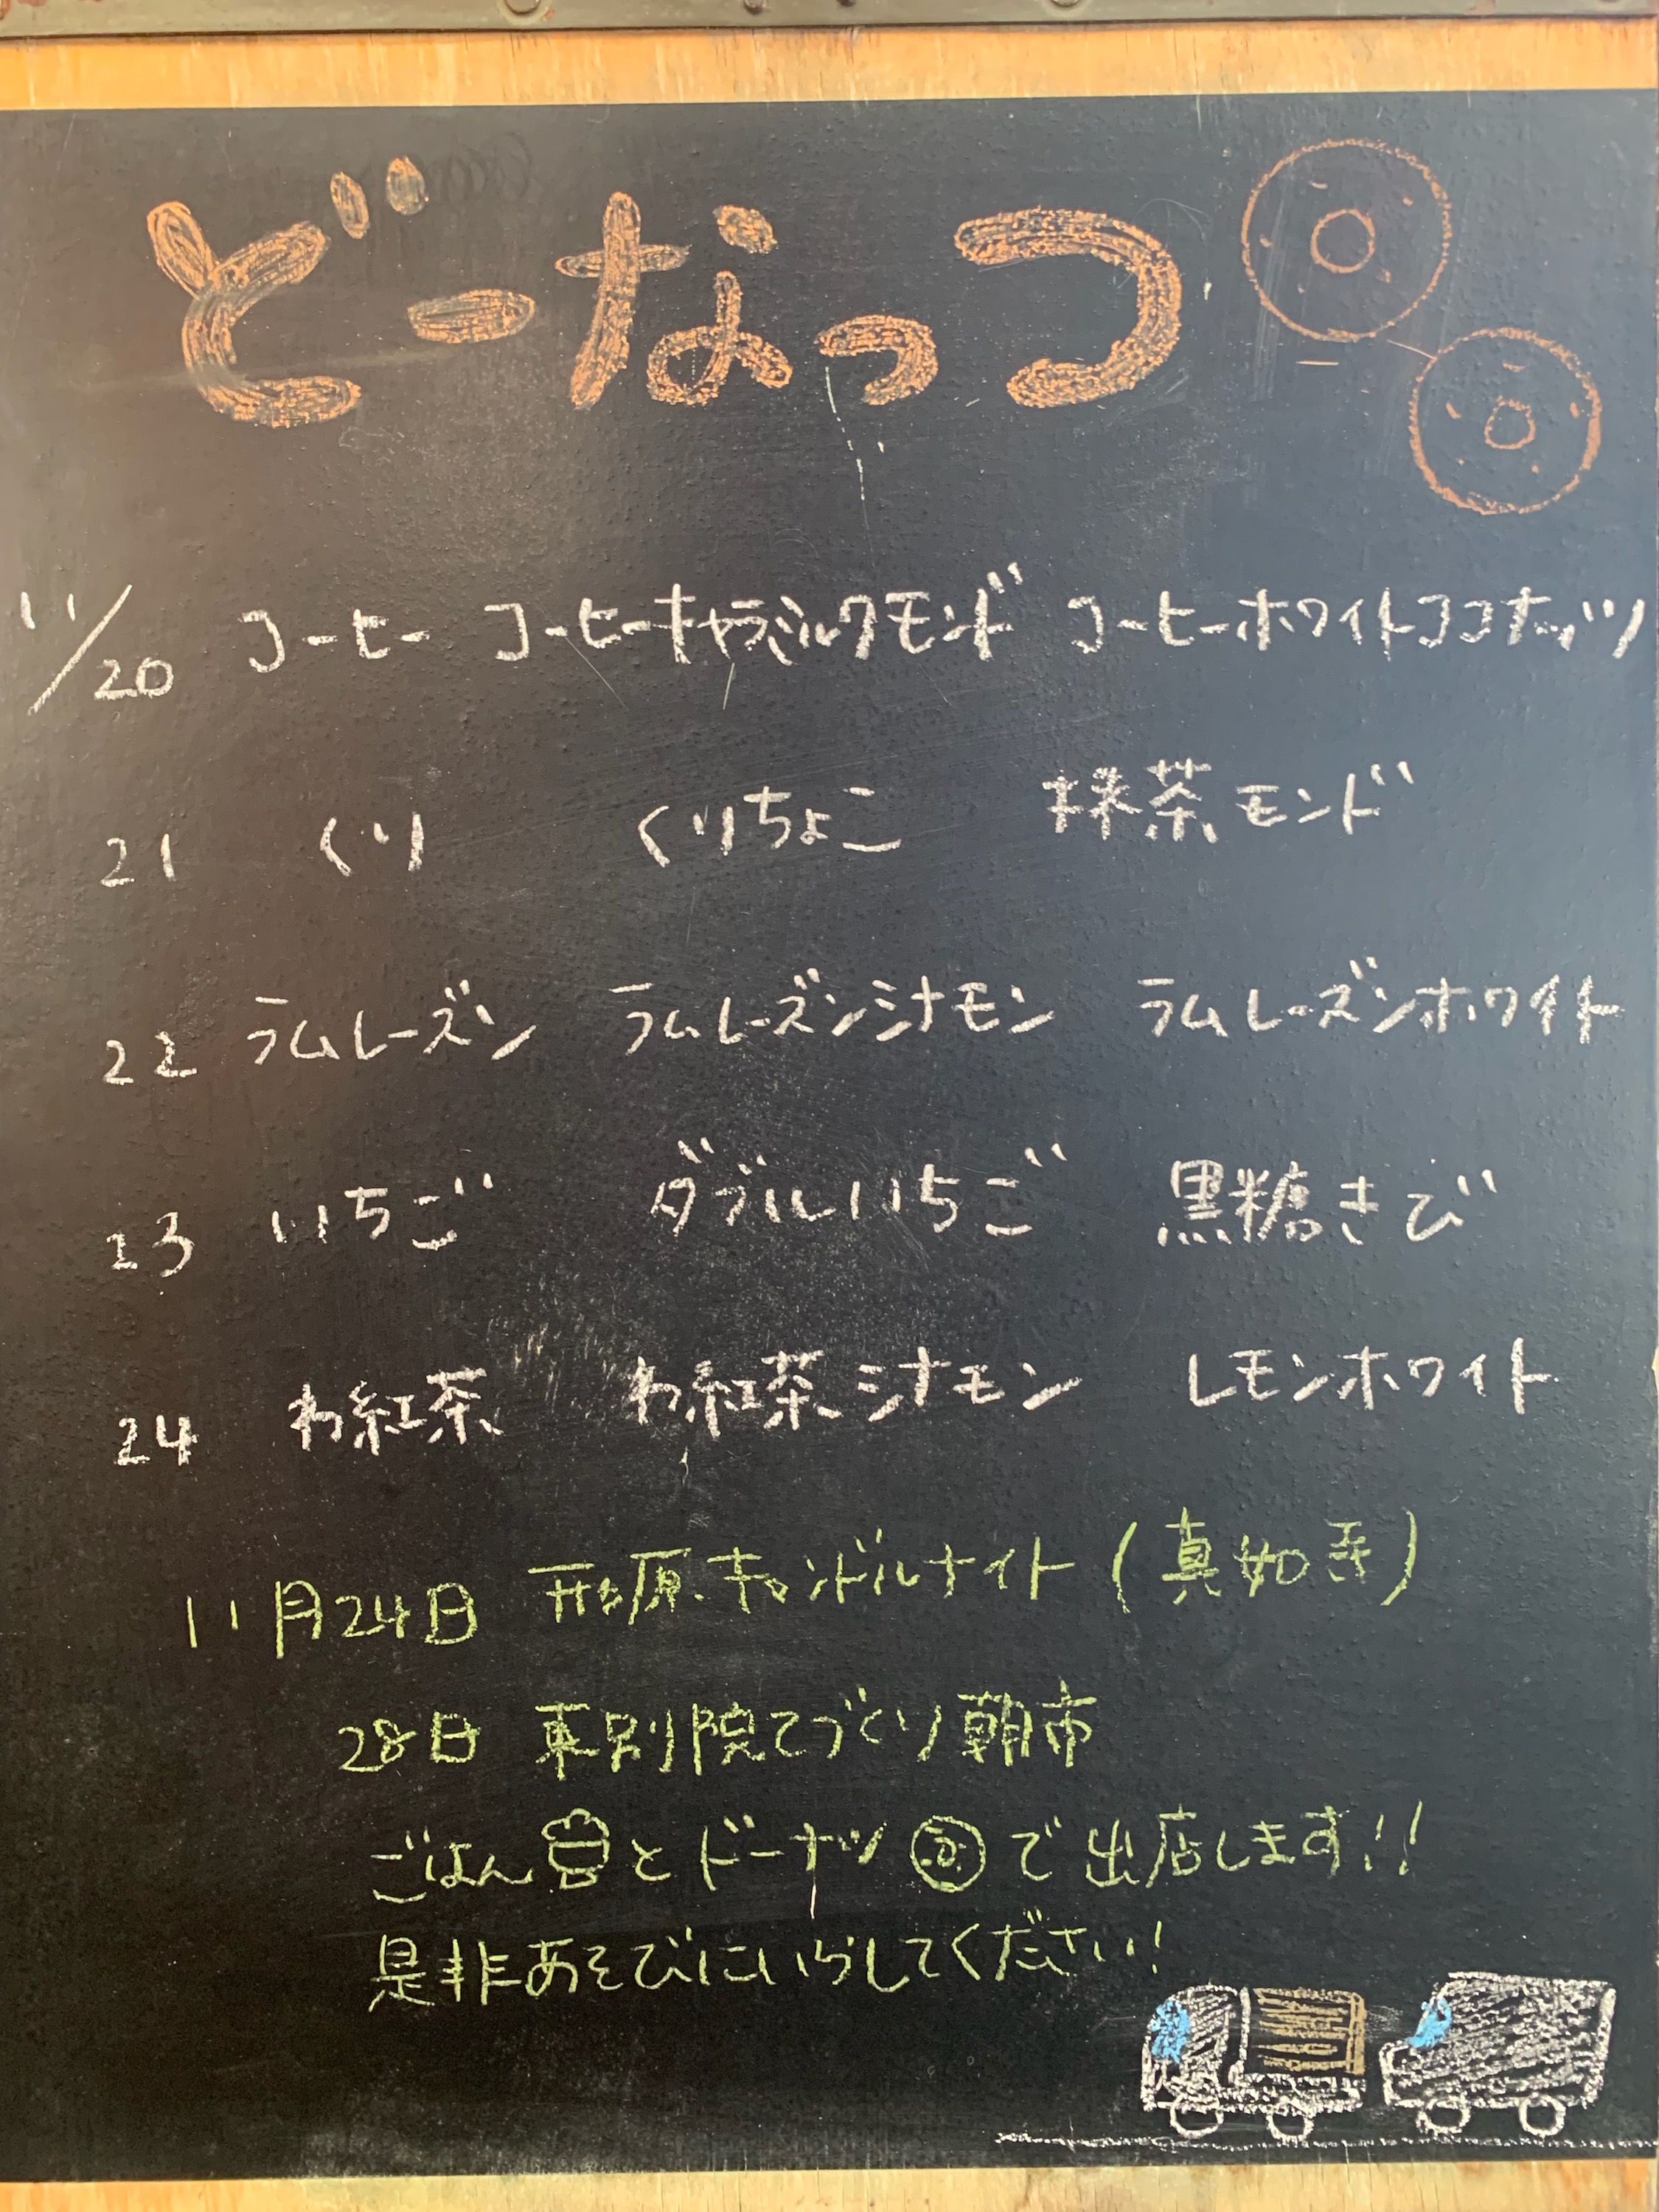 どーなっつ
11/20 コーヒー コーヒーキャラミルクモンド コーヒーホワイトココナッツ
21 くり くりちょこ 抹茶モンド
22 ラムレーズン ラムレーズンシナモン ラムレーズンホワイト
23 いちご ダブルいちご 黒糖きび
24 わ紅茶 わ紅茶シナモン レモンホワイト
11月24日 形原キャンドルナイト(真如寺)
28日 東別院てづくり朝市
ごはんとドーナツで出店します!!
是非あそびにいらしてください!